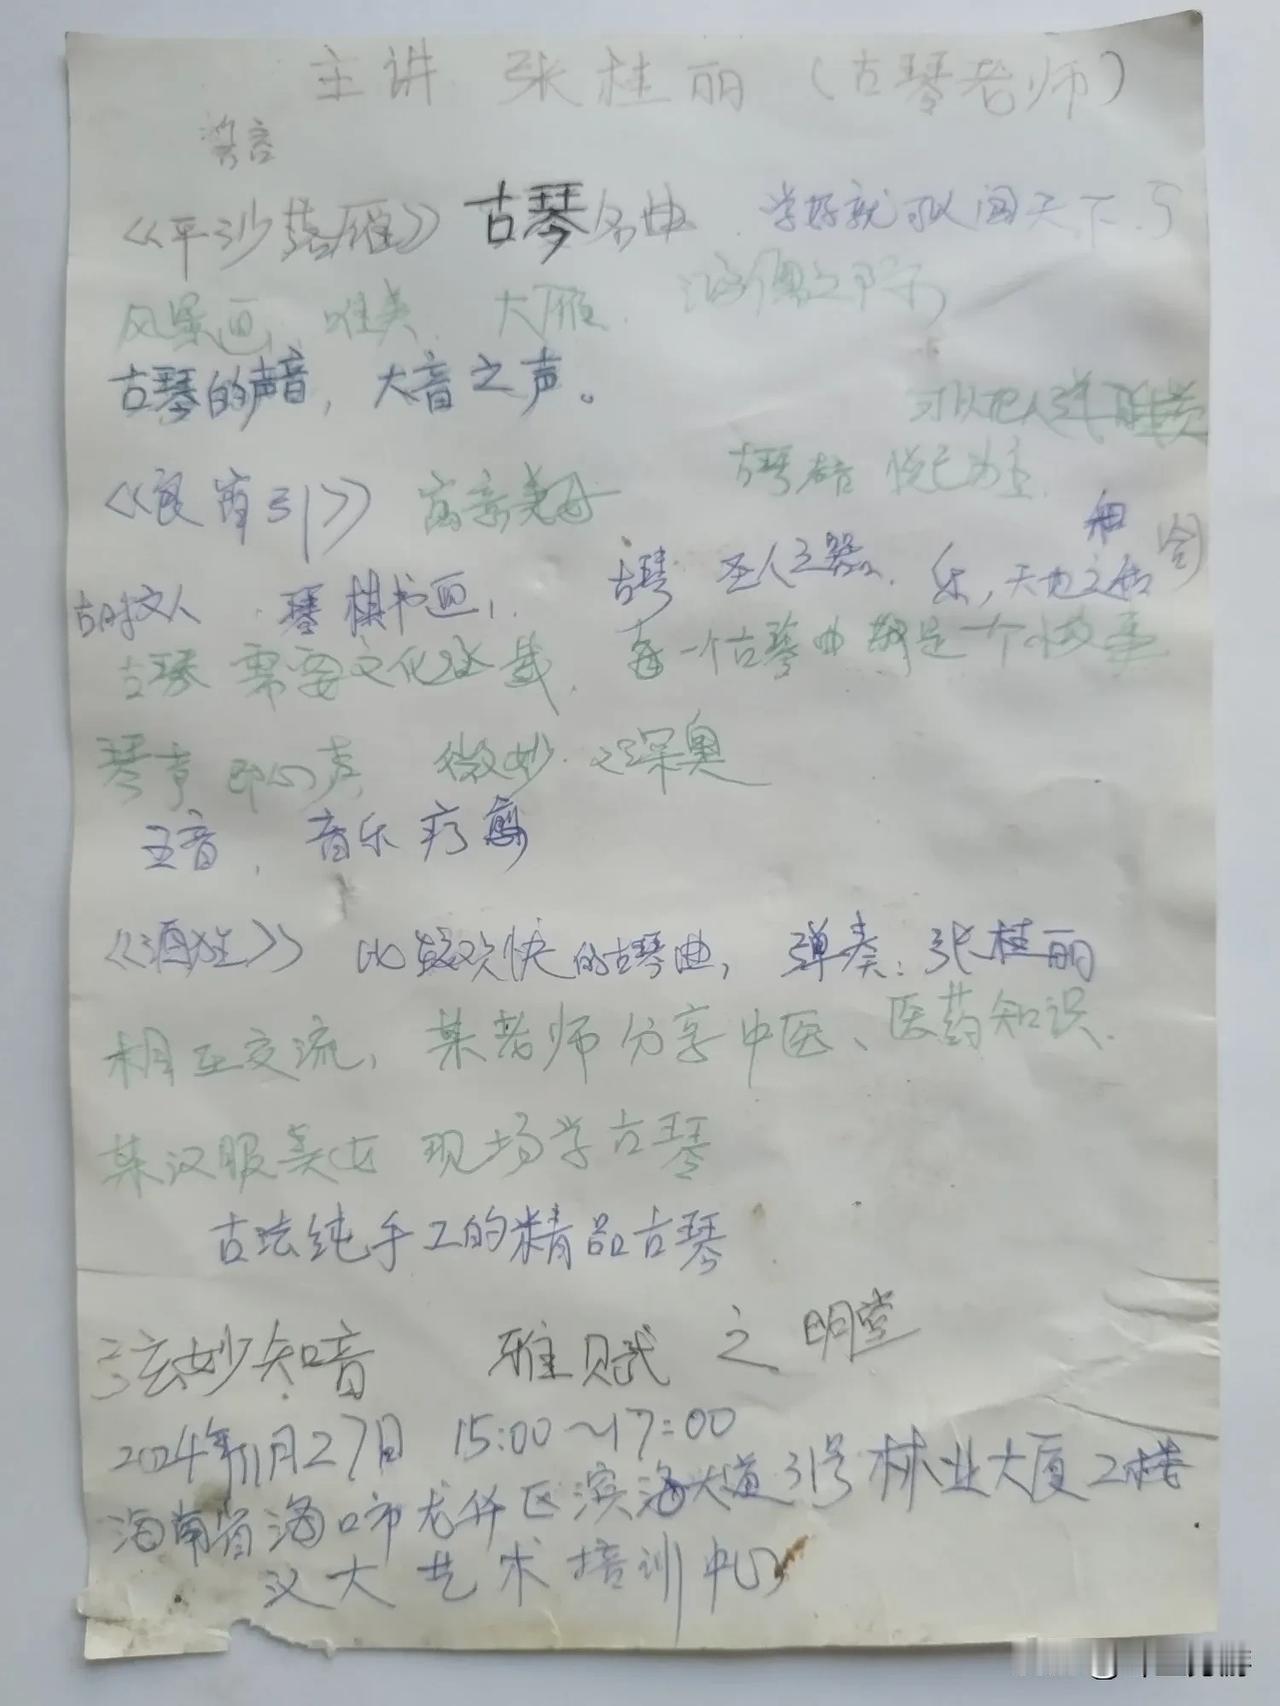 主讲 张桂丽（古琴老师）
《平沙落雁》古琴名曲 学好就可以闯天下
风景画 唯美 大雁
古琴的声音，大音之声。
可以把人弹
古琴 悦己为主
《良宵引》
和
古时文人 琴棋书画， 古琴 圣人之器。 乐，天地之和
古琴需要文化 每一个古琴曲都是一个故事
琴声即心声 微妙 又深奥
五音，音乐疗
《酒狂》 比较欢快的古琴曲，弹奏：张桂丽
相互交流，某老师分享中医、医药知识.
某汉服美女 现场学古琴
古法纯手工的精品古琴
弦妙知音 雅赋之明堂
2024年11月27日 15:00～17:00
海南省海口市龙华区滨海大道31号林业大厦2楼
汉大艺术培训中心